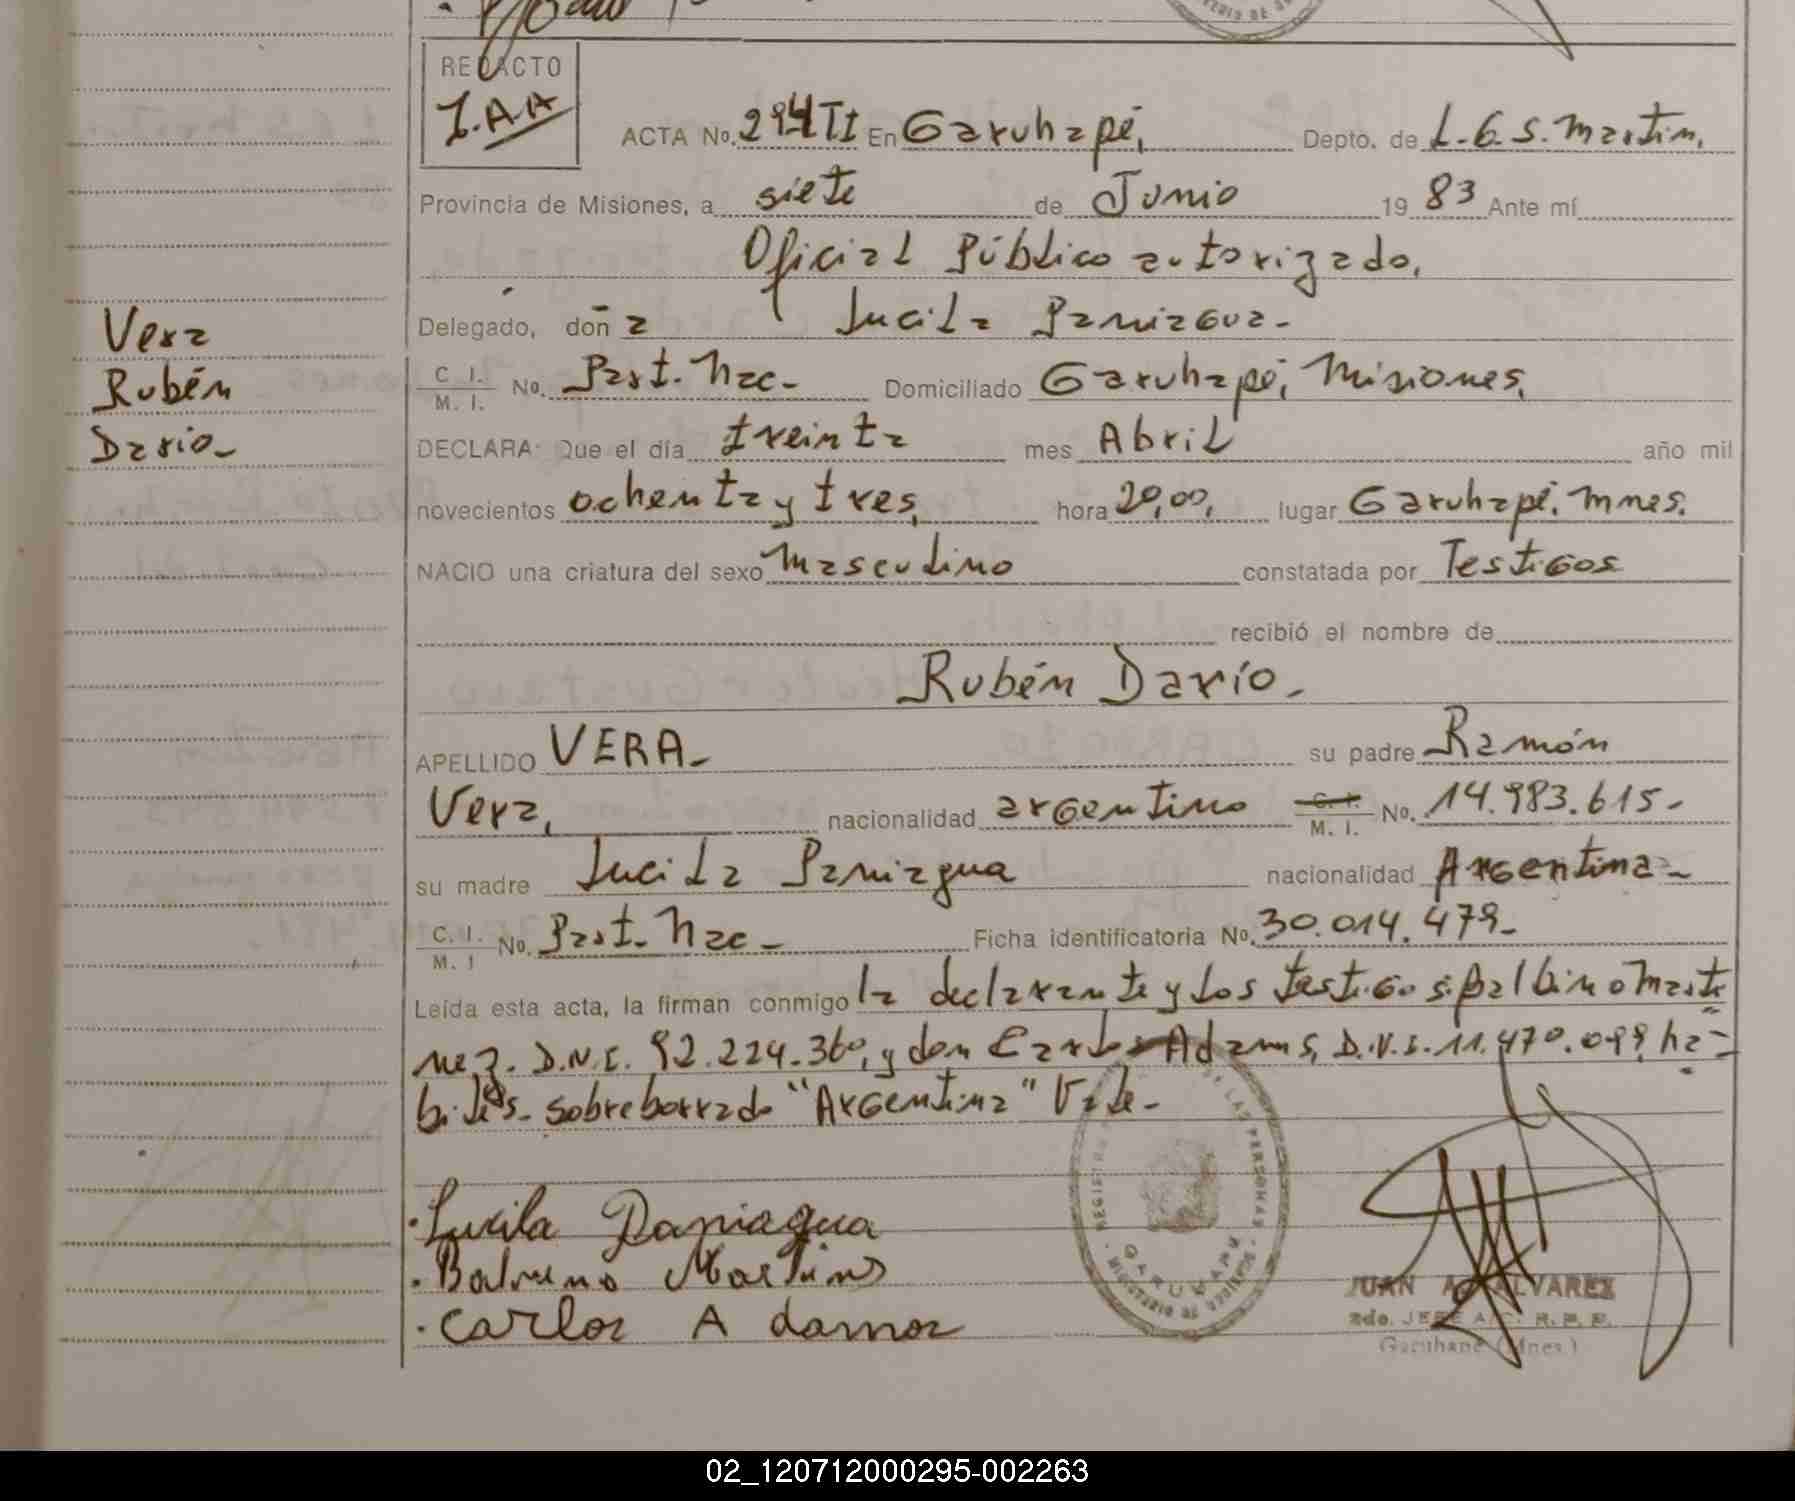 REDACTO
J.A.A
ACTA No. 294TI En Garuhapé, Depto. de L.G.S. Martin,
Provincia de Misiones, a siete de Junio 19 83 Ante mí
Oficial Público autorizado,
Delegado, don a Lucila Paniagua-
Vera
C. I. M. I. No. Part. Nac- Domiciliado Garuhapé, Misiones,
Rubén
DECLARA: Que el día treinta mes Abril año mil
Dario-
novecientos ochenta y tres, hora 20,00, lugar Garuhapé. Mnes.
NACIO una criatura del sexo Masculino constatada por Testigos
recibió el nombre de
Rubén Darío-
APELLIDO VERA- su padre Ramón
Vera, nacionalidad argentino C. I. M. I. No. 14.983.615-
su madre Lucila Paniagua nacionalidad Argentina-
C. I. M. I No. Part. Nac- Ficha identificatoria No. 30.014.479-
Leída esta acta, la firman conmigo la declarante y los testigos: Balbino Marti
nez. D.N.I. 92.224.360, y don Carlos Adams, D.N.I. 11.470.099, há-
biles- sobreborrado "Argentina" Vale-
Lucila Paniagua
Martins
Carlos A damos
REGISTRO DE LAS PERSONAS
GARUHAPE
MINISTERIO DE GOBIERNO
JUAN A. ALVAREZ
2do. JEFE A/C. R.P.P.
Garuhapé (Mnes.)
02_120712000295-002263